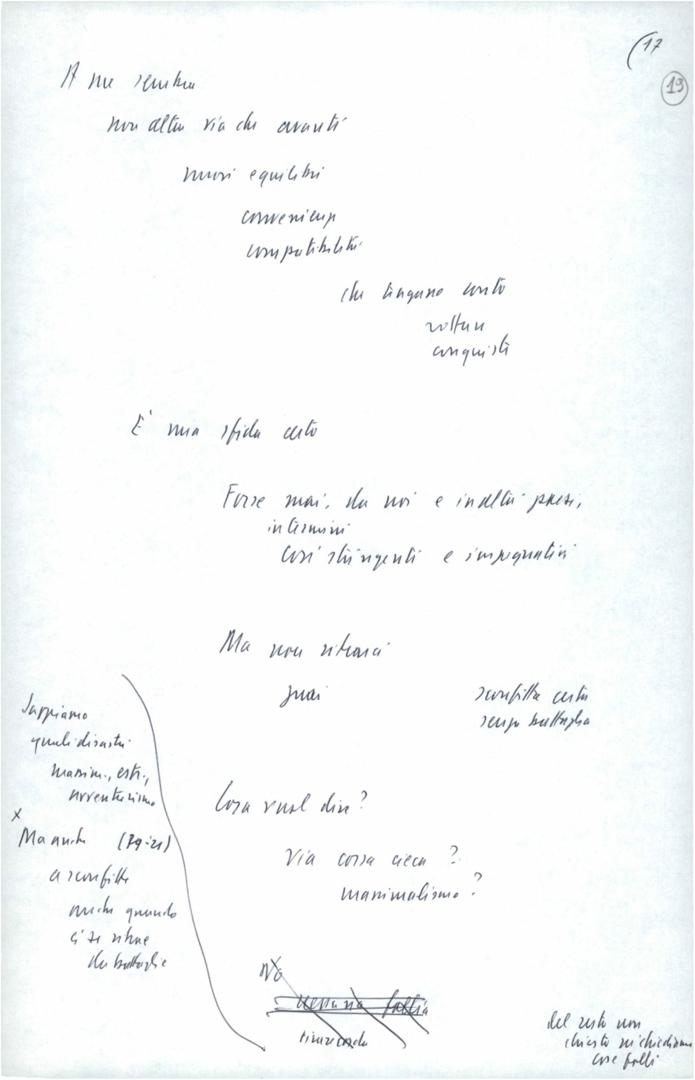 (17
19
A me sembra
non altra via che avanti
nuovi equilibri
convenienze
compatibilità
che tengano conto
rotture
conquiste
E' una sfida certo
Forse mai, da noi e in altri paesi,
in termini
così stringenti e impegnativi
Ma non ritrarsi
guai
sconfitta certa
senza battaglia
Sappiamo
quali disastri
massim., estr.,
avventurismo
x
Ma anche (19-21)
a sconfitte
anche quando
ci si ritrae
da battaglie
Cosa vuol dire?
Via corsa cieca?
massimalismo?
No
nessuna follia
del resto non
chiesto né chiediamo
cose folli